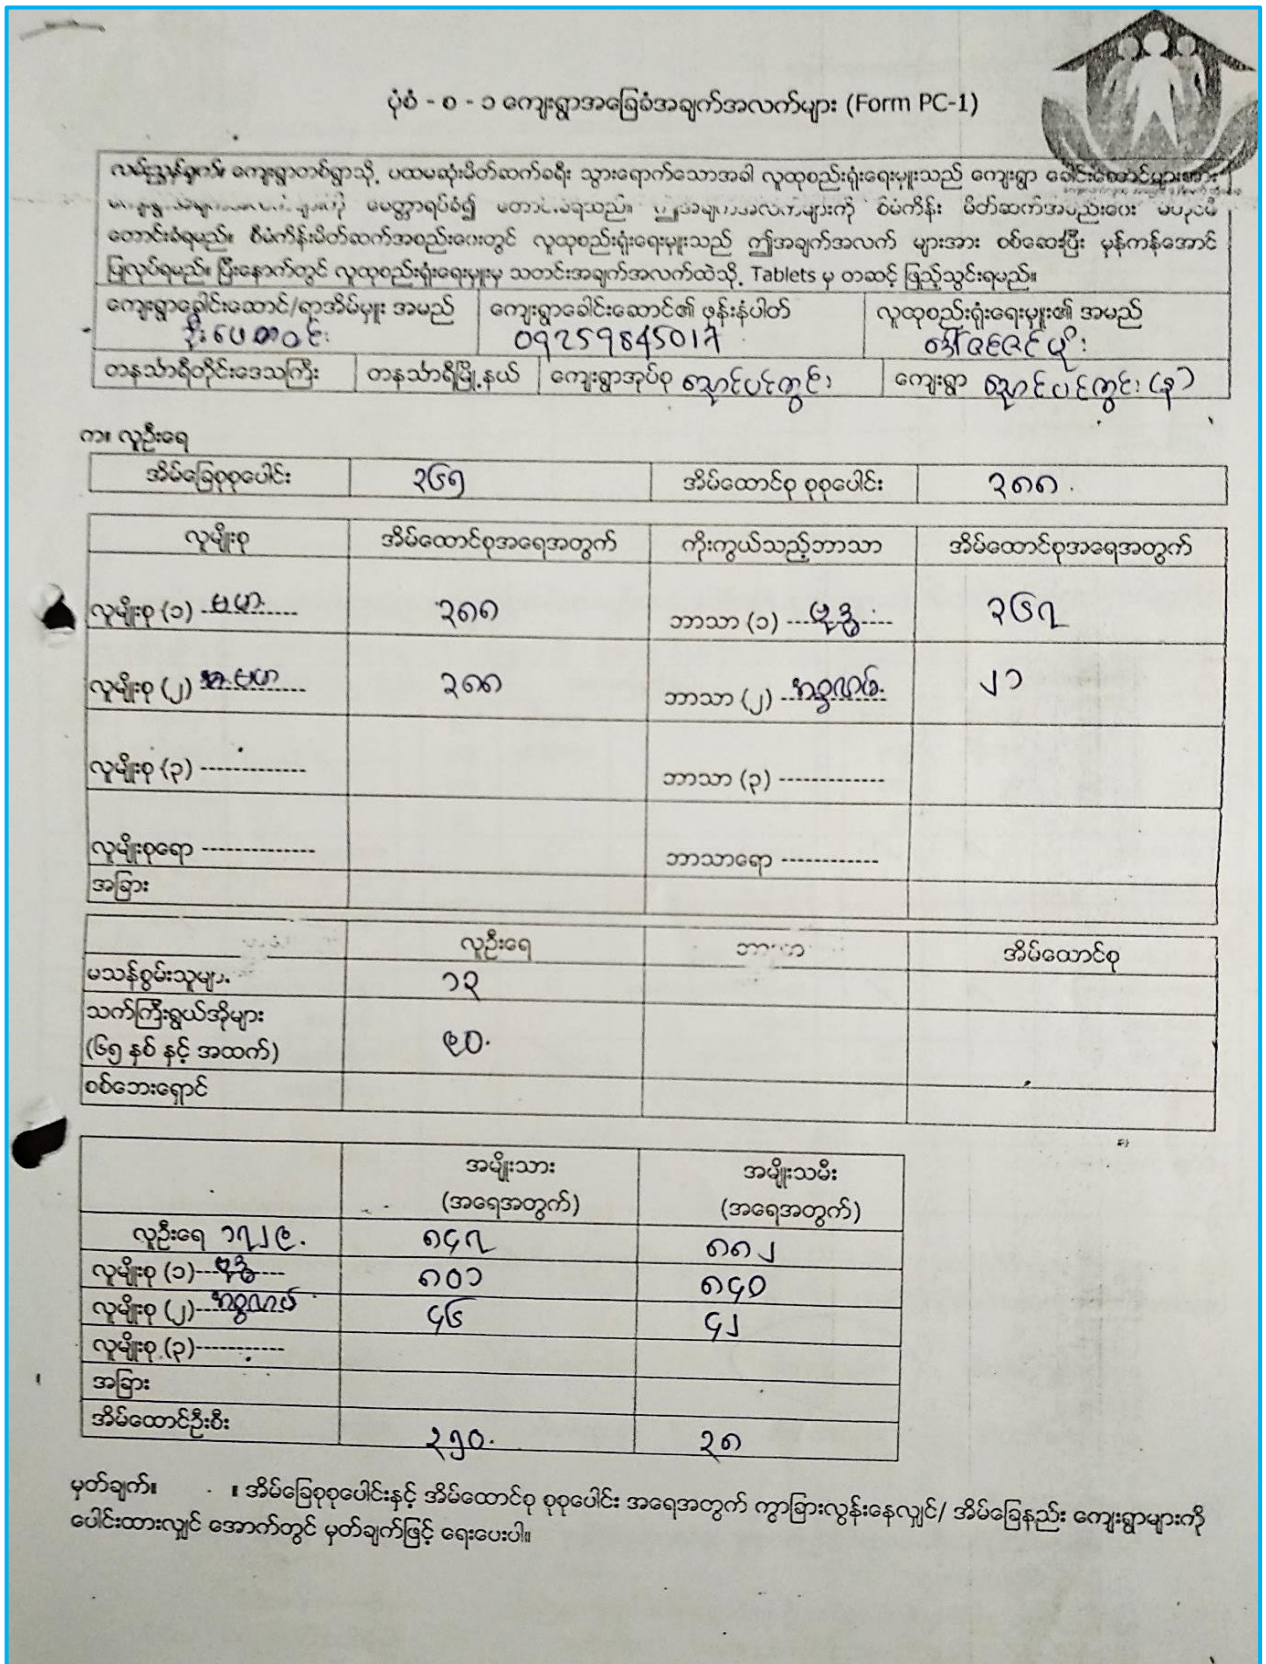 ပုံစံ - စ - ၁ ကျေးရွာအခြေခံအချက်အလက်များ (Form PC-1)
လမ်းညွှန်ချက်။ ကျေးရွာတစ်ရွာသို့ ပထမဆုံးမိတ်ဆက်ခရီး သွားရောက်သောအခါ လူထုစည်းရုံးရေးမှူးသည် ကျေးရွာ ခေါင်းဆောင်များအား
မေတ္တာရပ်ခံ၍ တောင်းခံရမည်။ ဤအချက်အလက်များကို စီမံကိန်း မိတ်ဆက်အစည်းဝေး မပြုလုပ်မီ
တောင်းခံရမည်။ စီမံကိန်းမိတ်ဆက်အစည်းဝေးတွင် လူထုစည်းရုံးရေးမှူးသည် ဤအချက်အလက် များအား စစ်ဆေးပြီး မှန်ကန်အောင်
ပြုလုပ်ရမည်။ ပြီးနောက်တွင် လူထုစည်းရုံးရေးမှူးမှ သတင်းအချက်အလက်ထဲသို့ Tablets မှ တဆင့် ဖြည့်သွင်းရမည်။
ကျေးရွာခေါင်းဆောင်/ရာအိမ်မှူး အမည် ကျေးရွာခေါင်းဆောင်၏ ဖုန်းနံပါတ် လူထုစည်းရုံးရေးမှူး၏ အမည်
ဦးဖေတဝင်း 09259845017 ဒေါ်ဇင်ဇင်ဖိုး
တနင်္သာရီတိုင်းဒေသကြီး တနင်္သာရီမြို့နယ် ကျေးရွာအုပ်စု ညောင်ပင်ကွင်း ကျေးရွာ ညောင်ပင်ကွင်း (န)
က။ လူဦးရေ
အိမ်ခြေစုစုပေါင်း ၃၆၅ အိမ်ထောင်စု စုစုပေါင်း ၃၈၈
လူမျိုးစု အိမ်ထောင်စုအရေအတွက် ကိုးကွယ်သည့်ဘာသာ အိမ်ထောင်စုအရေအတွက်
လူမျိုးစု (၁) ဗမာ ၃၈၈ ဘာသာ (၁) ဗုဒ္ဓ ၃၆၇
လူမျိုးစု (၂) ၃၈၈ ဘာသာ (၂) အစ္စလာမ် ၂၁
လူမျိုးစု (၃) ------------- ဘာသာ (၃) -------------
လူမျိုးစုရော -------------- ဘာသာရော ------------
အခြား
လူဦးရေ အိမ်ထောင်စု
မသန်စွမ်းသူများ ၁၃
သက်ကြီးရွယ်အိုများ
(၆၅ နှစ် နှင့် အထက်) ၉၀
စစ်ဘေးရှောင်
အမျိုးသား အမျိုးသမီး
(အရေအတွက်) (အရေအတွက်)
လူဦးရေ ၁၇၂၉ ၈၄၇ ၈၈၂
လူမျိုးစု (၁) ဗုဒ္ဓ ၈၀၁ ၈၄၀
လူမျိုးစု (၂) အစ္စလာမ် ၄၆ ၄၂
လူမျိုးစု (၃)-----------
အခြား
အိမ်ထောင်ဦးစီး ၃၅၀ ၃၈
မှတ်ချက်။ ။ အိမ်ခြေစုစုပေါင်းနှင့် အိမ်ထောင်စု စုစုပေါင်း အရေအတွက် ကွာခြားလွန်းနေလျှင်/ အိမ်ခြေနည်း ကျေးရွာများကို
ပေါင်းထားလျှင် အောက်တွင် မှတ်ချက်ဖြင့် ရေးပေးပါ။